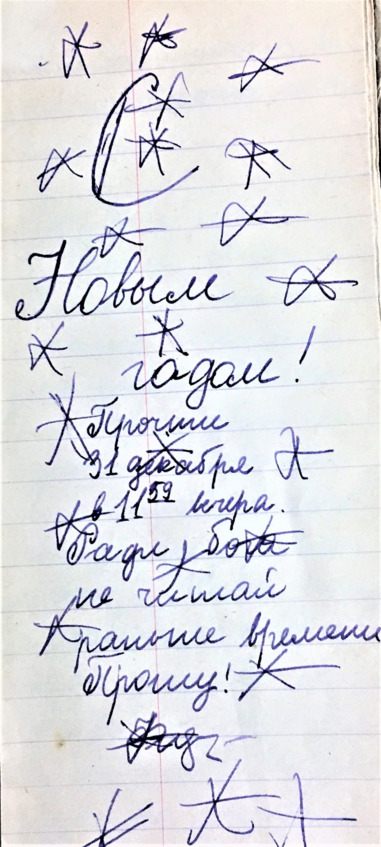 С
Новым
годом!
Прочти
31 декабря
в 11 59 вечера.
Ради бога
не читай
раньше времени
Прошу!